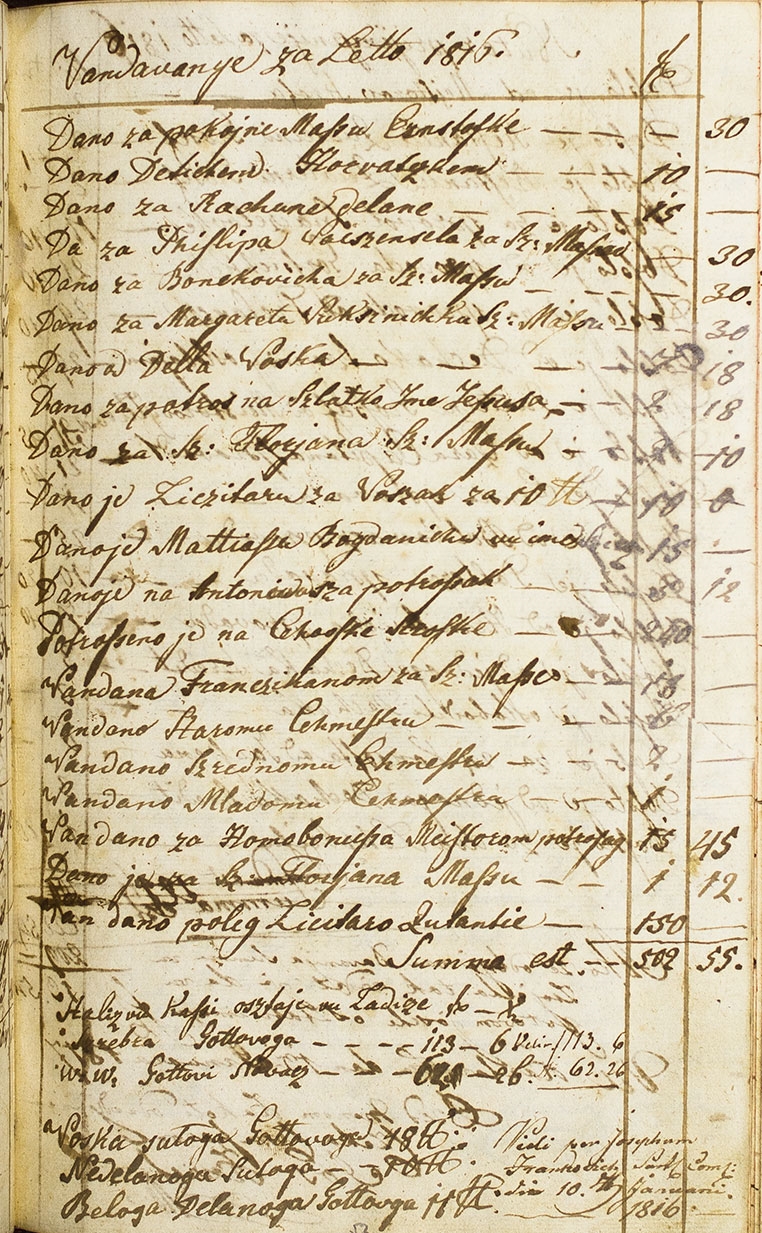 Vandavanye za Letto 1816. f x
Dano za pokojne Massu Ernstoske — — — 30
Dano Detichem Horvatzkem — — — 10 —
Dano za Rachune delane — — — 15 —
Da za Phillipa za Sz: Massu — 30
Dano za Bonekovicha za Sz: Massu — — — 30.
Dano za Margareta Sz: Massu — — 30
Dano od Della Voska — — — 18
Dano za potros na Szlatko Ime Jesusa — 2 18
Dano za Sz: Florjana Sz: Massu — 10
Dano je Liczitaru za Voszak za 10 tt — 10
Dano je Mattiassu Bogdanichu vu ime 15 —
Dano je na Antoniussa potrossak — — 12
Potrosseno je na Cehoske — 240 —
Vandana Franczikanom za Sz: Masse — — 15 —
Vandano Staromu Cehmestru — — — —
Vandano Szrednomu Cehmestru — — 2 —
Vandano Mladomu Cehmestru — — 1 —
Van dano za Homobonussa Meistorom potrossag 15 45
Dano je za Sz: Florjana Massu — — 1 12.
Van dano poleg Licitaro Quantie — 150 —
Summa est — 502 55.
Kassi osztaje vu Ladicze f — x
Szrebra Gottovoga — — — — 113 — 6 113. 6
W. W. Gottovi Novacz — — — 26. 62. 26
Voska sutoga Gottovoga 18 tt. Vidi per Josephum
Nedelanoga Sutoga — — 10 tt. Frankovich Com:
Beloga Delanoga Gottovga 11 tt. die 10. Januarii.
1816.